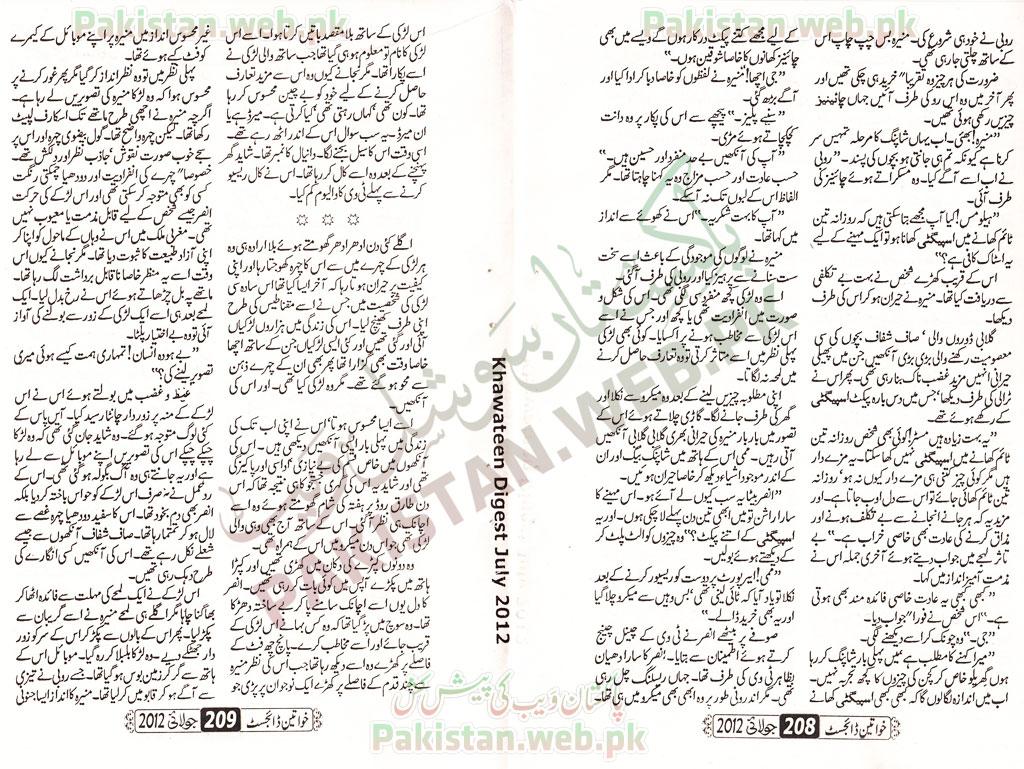 Pakistan.web.pk
رولی نے خود ہی شروع کی۔ منیرہ بس چپ چاپ اس
کے ساتھ چلتی جا رہی تھی۔
ضرورت کی ہر چیز وہ تقریباً خرید ہی چکی تھیں اور
پھر آخر میں وہ اس رو کی طرف آئیں جہاں چائنیز
چیزیں رکھی ہوئی تھیں۔
”منیرہ! بھئی۔ اب یہاں شاپنگ کا مرحلہ تمہیں سر
کرنا ہے کیونکہ تم ہی جانتی ہو بچوں کی پسند۔“ رولی
نے اب اسے آگے کیا۔ وہ مسکراتے ہوئے چائنیز کی
طرف آئی۔
”ہیلو مس! کیا آپ مجھے بتا سکتی ہیں کہ روزانہ تین
ٹائم کھانے میں اسپیگٹی کھانا ہو تو ایک مہینے کے لیے
یہ اسٹاک کافی ہے؟“
اس کے قریب کھڑے شخص نے بہت بے تکلفی
سے دریافت کیا تھا۔ منیرہ نے حیران ہو کر اس کی طرف
دیکھا۔
گلابی ڈوروں والی، صاف شفاف بچوں کی سی
معصومیت رکھنے والی بڑی بڑی آنکھیں جن میں پھیلی
حیرانی انہیں مزید غضب ناک بنا رہی تھی۔ پھر اس نے
ٹرالی کی طرف دیکھا جس میں دس بارہ پیکٹ اسپیگٹی
کے رکھے ہوئے تھے۔
”یہ بہت زیادہ ہیں مسٹر! کوئی بھی شخص روزانہ تین
ٹائم کھانے میں اسپیگٹی نہیں کھا سکتا۔ یہ مزے دار
ہیں مگر کوئی چیز کتنی ہی مزے دار کیوں نہ ہو روزانہ
تین ٹائم کھائی جائے تو اس سے دل اوب جاتا ہے۔ اور
مزید یہ کہ ہر جانے انجانے سے بے تکلف ہونے اور
مذاق کرنے کی عادت بھی خاصی خراب ہے۔“ بے
تاثر لہجے میں جواب دیتے ہوئے آخری جملہ اس نے
مذمت آمیز انداز میں کہا۔
”کبھی کبھی یہ عادت خاصی فائدہ مند بھی ہوتی
ہے۔“ اس شخص نے فوراً جواب دیا۔
”جی۔“ وہ چونک کر اسے دیکھنے لگی۔
”میرا کہنے کا مطلب ہے میں پہلی بار شاپنگ کر رہا
ہوں گھریلو خاص کر کچن کی چیزوں کا کچھ تجربہ نہیں۔
اب میں اندازہ لگاؤں گا کہ کبھی کبھی اسپیگٹی کھانے
کے لیے مجھے کتنے پیکٹ درکار ہوں گے ویسے میں بھی
چائنیز کھانوں کا خاصا شوقین ہوں۔“
”جی اچھا!“ منیرہ نے لفظوں کو خاصا دبا کر ادا کیا اور
آگے بڑھ گئی۔
”سنیے پلیز۔“ پیچھے سے اس کی پکار پر وہ دانت
کچکچاتے ہوئے مڑی۔
”آپ کی آنکھیں بے حد منفرد اور حسین ہیں۔“
حسب عادت اور حسب مزاج وہ یہ کہنا چاہتا تھا۔ مگر
الفاظ اس کے لبوں تک نہ آ سکے۔
”آپ کا بہت شکریہ۔“ اس نے کھوئے سے انداز
میں کہا تھا۔
منیرہ نے لوگوں کی موجودگی کے باعث اسے سخت
سست سنانے سے پرہیز کیا اور رولی کی طرف آ گئی۔
اسے وہ لڑکی کچھ منفرد سی لگی تھی۔ اس کی شکل و
صورت میں انفرادیت تھی یا کچھ اور جس نے اسے
اس سے مخاطب ہونے پر اکسایا۔ کوئی بھی لڑکی
پہلی نظر میں اسے متاثر کرتی تو وہ تعارف حاصل کرنے
میں لمحہ نہ لگاتا۔
اپنی مطلوبہ چیزیں لینے کے بعد وہ میکرو سے نکلا اور
گھر کی طرف جانے لگا۔ گاڑی چلاتے ہوئے اس کے
تصور میں بار بار منیرہ کی حیرانی بھری گلابی گلابی آنکھیں
آتی رہیں۔ ممی اس کے ہاتھ میں شاپنگ بیگ اور ان
کے اندر موجود اشیاء دیکھ کر خاصا حیران ہوئیں۔
”انفر بیٹا یہ سب کیوں لے آئے ہو۔ اس مہینے کا
سارا راشن تو میں ابھی تین دن پہلے لا چکی ہوں۔ اور یہ
اسپیگٹی کے اتنے پیکٹ؟“ وہ چیزوں کو الٹ پلٹ کر
کے دیکھتے ہوئے بولیں۔
”ممی! ایئرپورٹ پر دوست کو ریسیو کرنے کے بعد
نکلا تو یاد آیا کہ ٹائی لینی تھی، بس وہیں سے میکرو چلا گیا
اور یہ بھی خرید ڈالے۔“
صوفے پر بیٹھے انفر نے ٹی وی کے چینل چینج
کرتے ہوئے اطمینان سے بتایا۔ انفر کا سارا دھیان
بظاہر ٹی وی کی طرف تھا۔ جہاں ریسلنگ چل رہی
تھی۔ مگر اندرونی طور پر وہ ابھی بھی میکرو میں ہی تھا۔
خواتین ڈائجسٹ 208 جولائی 2012
Khawateen Digest July 2012
پاکستان ویب کی پیش کش
Pakistan.web.pk
PAKISTAN.WEB.PK
Pakistan.web.pk
اس لڑکی کے ساتھ بلا مقصد باتیں کرتا ہوا۔ اسے اس
لڑکی کا نام تو معلوم ہو ہی گیا تھا جب ساتھ والی لڑکی نے
اسے پکارا تھا۔ مگر نجانے کیوں وہ اس سے مزید تعارف
حاصل کرنے کے لیے خود کو بے چین محسوس کر رہا
تھا۔ کون تھی، کہاں رہتی تھی، کیا کرتی ہے۔ میرڈ ہے یا
ان میرڈ۔ یہ سب سوال اس کے اندر اٹھ رہے تھے۔
اسی وقت اس کا سیل بجنے لگا۔ دانیال کا نمبر تھا۔ شاید گھر
پہنچنے کے بعد وہ اسے کال کر رہا تھا۔ اس نے کال ریسیو
کرنے سے پہلے ٹی وی کا والیوم کم کیا۔
☆ ☆ ☆
اگلے کئی دن ادھر ادھر گھومتے ہوئے بلا ارادہ ہی وہ
ہر لڑکی کے چہرے میں سے اس کا چہرہ کھوجتا رہا اور اپنی
کیفیت پر حیران ہوتا رہا کہ آخر ایسا کیا تھا اس سادہ سی
لڑکی کی شخصیت میں جس نے اسے مقناطیس کی طرح
اپنی طرف کھینچ لیا۔ اس کی زندگی میں ہزاروں لڑکیاں
آئی اور گئی تھیں اور کئی ایسی لڑکیاں جن کے ساتھ اچھا
خاصا وقت بھی گزارا تھا پھر بھی ان کے چہرے ذہن
سے محو ہو گئے تھے۔ مگر وہ لڑکی کیا تھی۔ اور اس کی
آنکھیں۔
اسے ایسا محسوس ہوتا اس نے اپنی اب تک کی
زندگی میں پہلی بار ایسی آنکھیں دیکھی ہیں۔ اس کی
آنکھوں میں خاص قسم کی بے نیازی، اداسی اور پاکیزگی
تھی اور شاید یہ اس کی گہری جستجو کا ہی نتیجہ تھا کہ اس
دن طارق روڈ پر ہفتہ کی شام گھومتے ہوئے وہ اسے
اچانک ہی نظر آ گئی۔ اس کے ساتھ آج بھی وہی والی
لڑکی تھی جو اس دن میکرو میں اس کے ہمراہ تھی۔
وہ دونوں کپڑے کی دکان میں کھڑی تھیں اور کپڑا
ہاتھ میں پکڑے آپس میں کوئی بات کر رہی تھیں۔ انفر
کا دل یوں اسے اچانک سامنے پا کر بے ساختہ دھڑکا
تھا۔ وہ سوچ میں پڑ گیا تھا کہ وہ کس بہانے اس لڑکی کے
قریب جائے اور اسے مخاطب کرے۔ پانچ چھ فٹ کے
فاصلے پر کھڑے وہ اسے دیکھ رہا تھا جب اس کی نظر منیرہ
سے چند قدم کے فاصلے پر کھڑے ایک نوجوان پر پڑی جو
غیر محسوس انداز میں منیرہ پر اپنے موبائل کے کیمرے
کو فٹ کیے ہوئے تھا۔
پہلی نظر میں تو وہ نظر انداز کر گیا مگر پھر غور کرنے پر
محسوس ہوا کہ وہ لڑکا منیرہ کی تصویریں لے رہا ہے۔
اگرچہ منیرہ نے اچھی طرح ماتھے تک اسکارف لپیٹ
رکھا تھا۔ لیکن چہرہ واضح تھا۔ گول بیضوی چہرہ اور اس پر
سجے خوب صورت نقوش، جاذب نظر اور دلکش تھے۔
خصوصاً چہرے کی انفرادیت اور دودھیا چمکتی رنگت
کسی کو بھی متوجہ کر سکتی تھی اور اس لڑکے کی حرکت
انفر جیسے شخص کے لیے قابل مذمت یا معیوب نہیں
تھی۔ مغربی ملک میں اس نے وہاں کے ماحول کو اپنا کر
اپنی آزاد طبیعت کا ثبوت دیا تھا۔ مگر نجانے کیوں اس
وقت اسے یہ منظر خاصا ناقابل برداشت لگ رہا تھا۔
ماتھے پہ بل چڑھاتے ہوئے اس نے رخ بدل لیا۔ ایک
لمحے بعد ہی اسے ایک لڑکی کے زور سے بولنے کی آواز
آئی تو وہ بے اختیار پلٹا۔
”بے ہودہ انسان! تمہاری ہمت کیسے ہوئی میری
تصویر لینے کی؟“
غیظ و غضب میں بولتے ہوئے اس نے اس
لڑکے کے منہ پر زوردار چانٹا رسید کیا۔ آس پاس کے
کئی لوگ متوجہ ہو گئے۔ وہ شاید جان گئی تھی کہ وہ لڑکا
چپکے چپکے اس کی تصویریں اپنے موبائل سے لے رہا
ہے اور یہ جانتے ہی وہ آگ بگولہ ہو گئی تھی۔ اس کے
رد عمل نے نہ صرف اس لڑکے کو حواس باختہ کر دیا بلکہ
انفر بھی دم بخود تھا۔ اس کا سفید دودھیا چہرہ غصے سے
لال ہو کر تمتما رہا تھا۔ صاف شفاف آنکھوں سے جیسے
شعلے نکل رہے تھے۔ اس کی آنکھیں کسی انگارے کی
طرح دہک رہی تھیں۔
اس لڑکے نے ایک لمحے کی مہلت سے فائدہ اٹھا کر
بھاگنا چاہا مگر اگلے ہی لمحے منیرہ نے اسے گریبان سے
پکڑ لیا۔ پھر اس کے بالوں سے پکڑ کر اس کے سر کو زور
دار جھٹکے دیے۔ وہ لڑکا بلبلا کر رہ گیا۔ موبائل اس کے
ہاتھ سے گر کر زمین بوس ہو گیا تھا۔ جسے رولی نے تیزی
سے آگے ہو کر قابو میں کر لیا تھا۔ منیرہ کا انداز ایسا جنونی
خواتین ڈائجسٹ 209 جولائی 2012